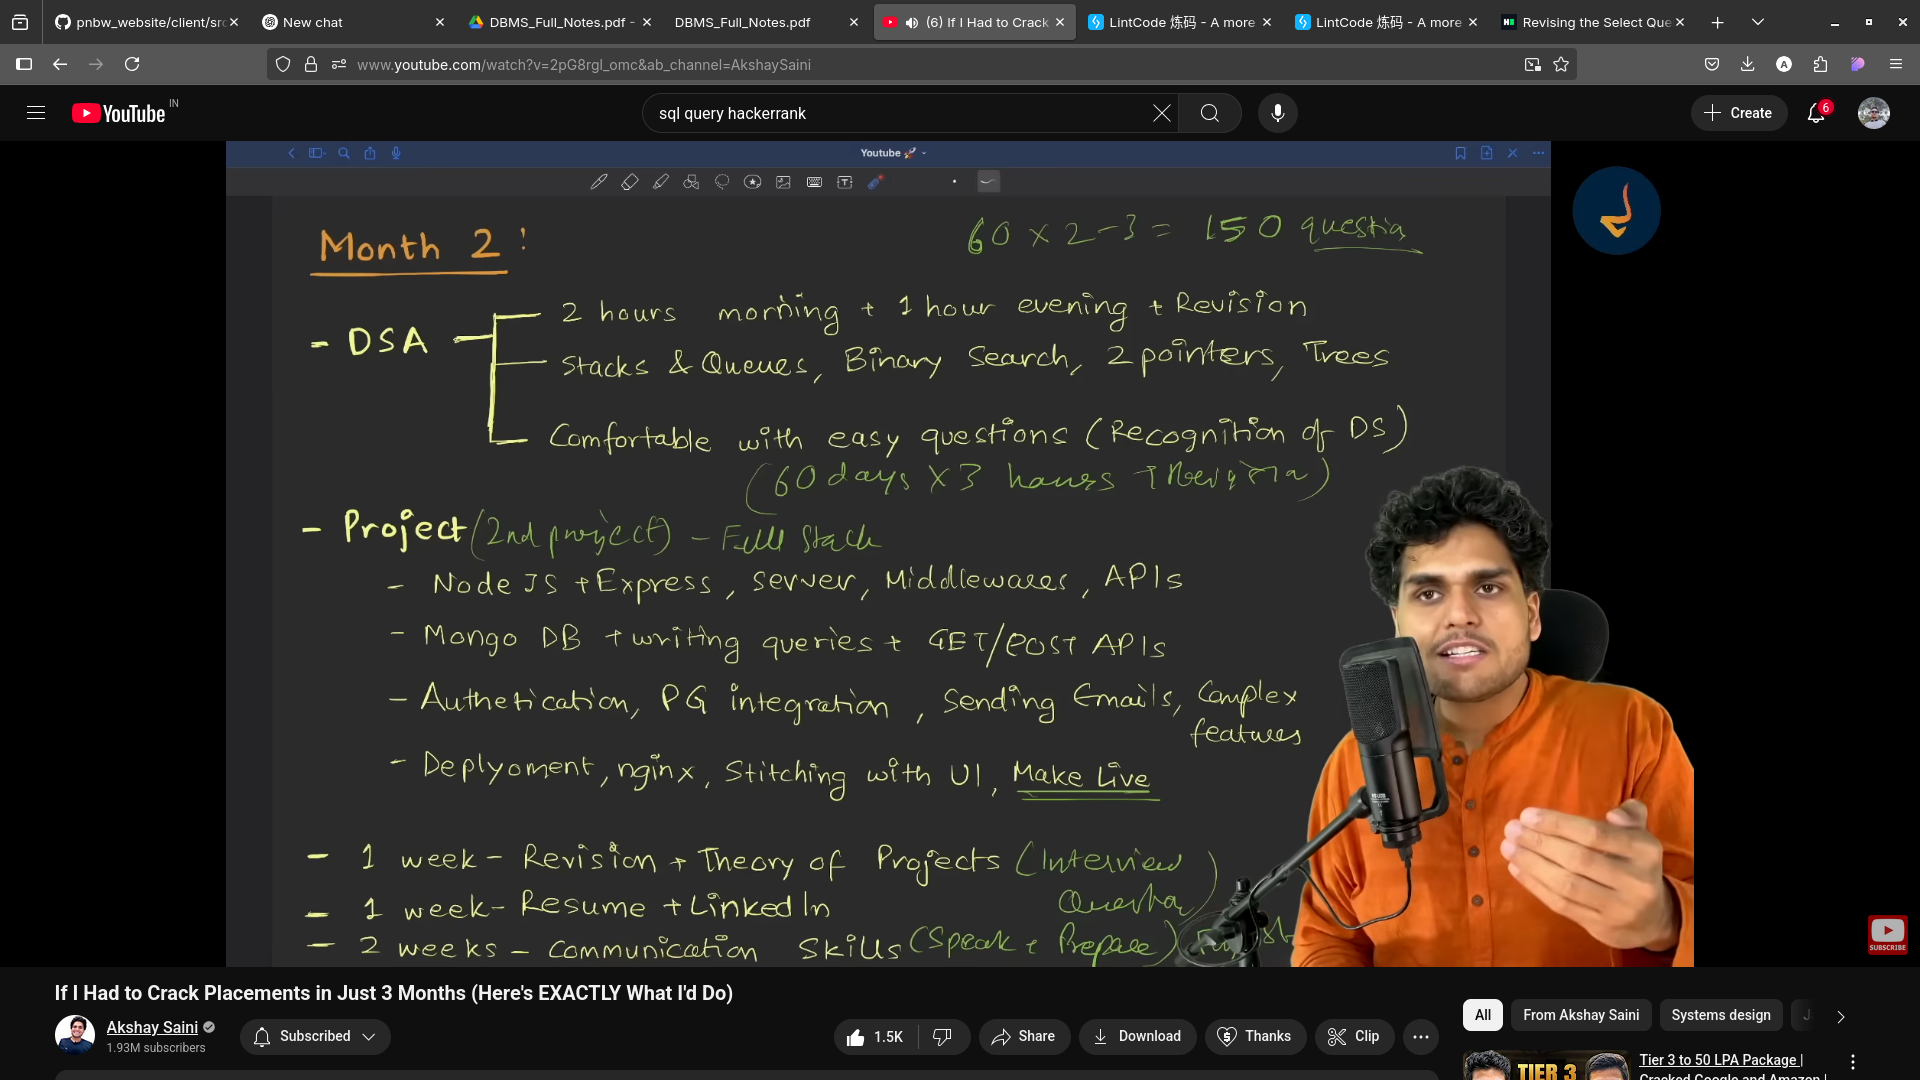 pnbw_website/client/src
New chat
DBMS_Full_Notes.pdf -
DBMS_Full_Notes.pdf
(6) If I Had to Crack
LintCode 炼码 - A more
LintCode 炼码 - A more
Revising the Select Que
www.youtube.com/watch?v=2pG8rgl_omc&ab_channel=AkshaySaini
YouTube IN
sql query hackerrank
Create
6
Youtube 🚀
Month 2 :
60 x 2-3 = 150
- DSA
2 hours morning + 1 hour evening + Revision
Stacks & Queues, Binary Search, 2 pointers, Trees
Comfortable with easy questions (Recognition of DS)
(60 days x 3 hours + Revision)
- Project (2nd project) - Full Stack
- Node JS + Express, Server, Middlewares, APIs
- Mongo DB + writing queries + GET/POST APIs
- Authetication, PG integration, Sending Emails, Complex
features
- Deplyoment, nginx, Stitching with UI, Make Live
- 1 week - Revision + Theory of Projects (Interview
- 1 week - Resume + LinkedIn
- 2 weeks - Communication Skills (Speak + Prepare)
SUBSCRIBE
If I Had to Crack Placements in Just 3 Months (Here's EXACTLY What I'd Do)
Akshay Saini
1.93M subscribers
Subscribed
1.5K
Share
Download
Thanks
Clip
All
From Akshay Saini
Systems design
TIER 3
Tier 3 to 50 LPA Package |
Cracked Google and Amazon |